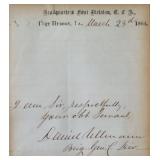 Headquarters First Division, C. d'A.
Port Hudson, La., March 28th 1864.
I am Sir, respectfully,
Your obt Servant
Daniel Ullmann
Brig Genl Com